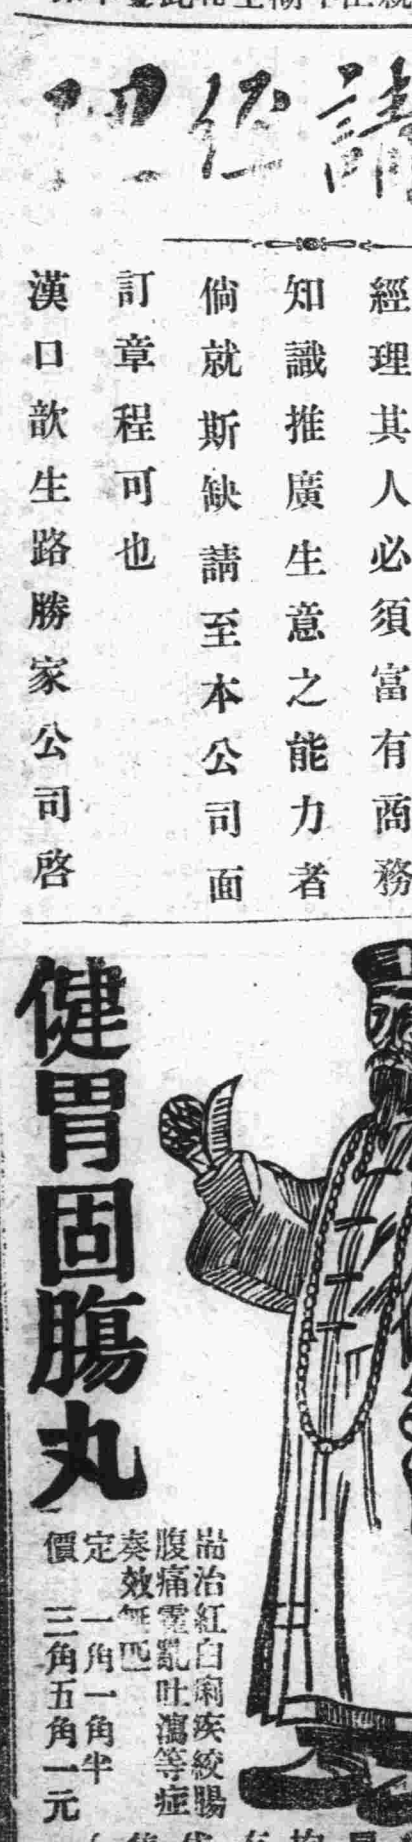 請任理
經理其人必須富有商務
知識推廣生意之能力者
倘就斯缺請至本公司面
訂章程可也
漢口歆生路勝家公司啓
健胃固腸丸
耑治紅白痢疾絞腸
腹痛霍亂吐瀉等症
奏效無匹
定 一角一角半
價 三角五角一元